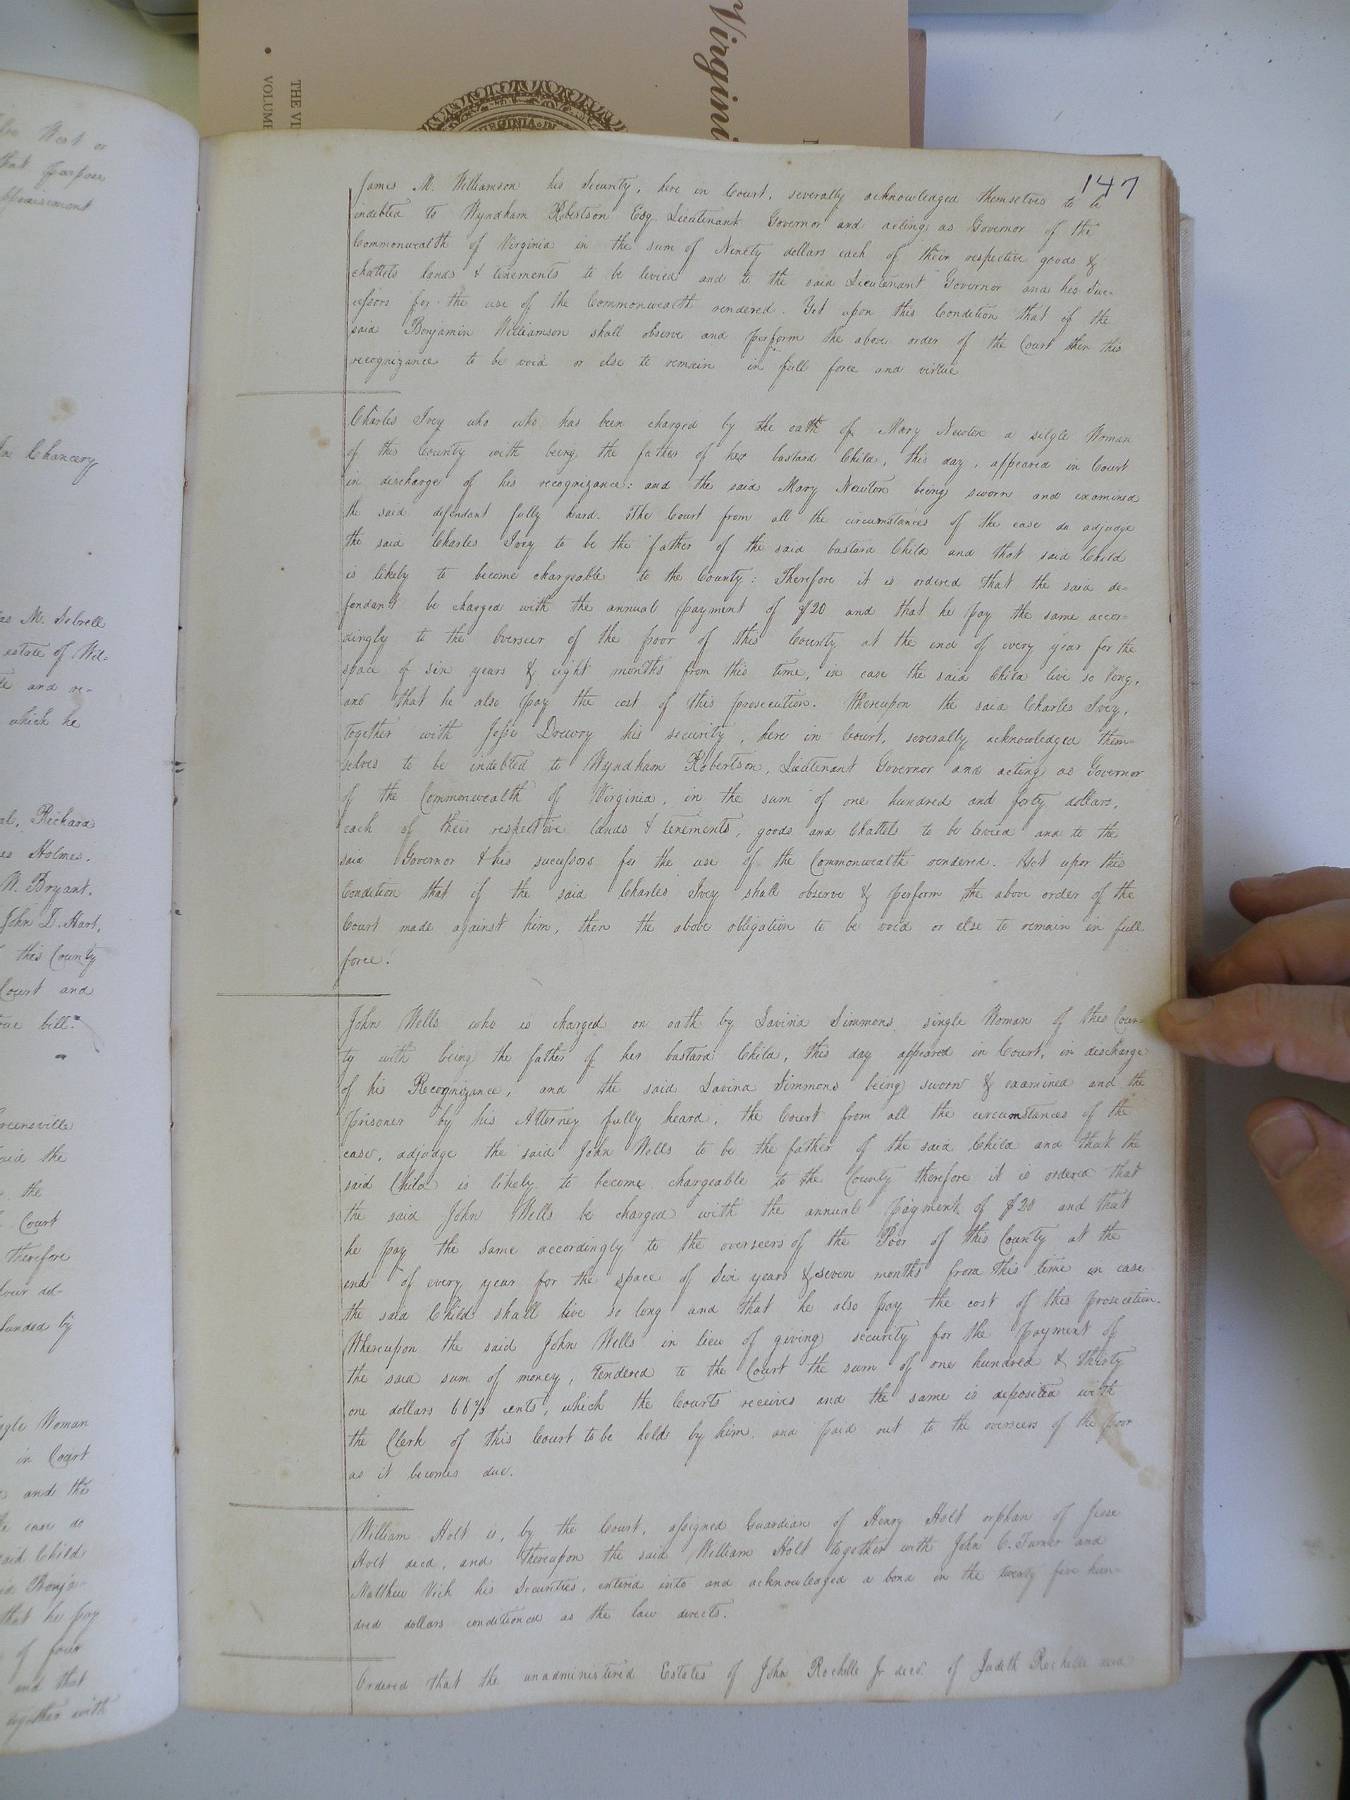 Virgini
THE VI
VOLUME
VIRGINIA
147
James M. Williamson his Security, here in Court, severally acknowledged themselves to be
indebted to Wyndham Robertson Esq. Lieutenant Governor and acting as Governor of the
Commonwealth of Virginia in the sum of Ninety dollars each of their respective goods &
chattels lands & tenements to be levied and to the said Lieutenant Governor and his Suc-
cessors for the use of the Commonwealth rendered. Yet upon this Condition that if the
said Benjamin Williamson shall observe and perform the above order of the Court then this
recognizance to be void or else to remain in full force and virtue
Charles Ivey who who has been charged by the oath of Mary Newton a single Woman
of this County with being the father of her bastard Child, this day, appeared in Court
in discharge of his recognizance: and the said Mary Newton being sworn and examined
the said defendant fully heard. The Court from all the circumstances of the case do adjudge
the said Charles Ivey to be the father of the said bastard Child and that said Child
is likely to become chargeable to the County: Therefore it is ordered that the said de-
fendant be charged with the annual payment of $20 and that he pay the same accor-
dingly to the overseer of the poor of this County at the end of every year for the
space of six years & eight months from this time, in case the said Child live so long,
and that he also pay the cost of this prosecution. Thereupon the said Charles Ivey,
together with Jesse Drewry his security, here in Court, severally acknowledged them-
selves to be indebted to Wyndham Robertson, Lieutenant Governor and acting as Governor
of the Commonwealth of Virginia, in the sum of one hundred and forty dollars,
each of their respective lands & tenements, goods and Chattels to be levied and to the
said Governor & his successors for the use of the Commonwealth rendered. Yet upon this
Condition that if the said Charles Ivey shall observe & perform the above order of the
Court made against him, then the above obligation to be void or else to remain in full
force.
John Wells who is charged on oath by Lavina Simmons single Woman of this Coun-
ty with being the father of her bastard Child, this day appeared in Court, in discharge
of his Recognizance, and the said Lavina Simmons being sworn & examined and the
Prisoner by his Attorney fully heard, the Court from all the circumstances of the
case, adjudge the said John Wells to be the father of the said Child and that the
said Child is likely to become chargeable to the County therefore it is ordered that
the said John Wells be charged with the annual payment of $20 and that
he pay the same accordingly to the overseers of the Poor of this County at the
end of every year for the space of Six years & seven months from this time in case
the said Child shall live so long and that he also pay the cost of this prosecution.
Whereupon the said John Wells in lieu of giving security for the payment of
the said sum of money, tendered to the Court the sum of one hundred & thirty
one dollars 66⅔ cents, which the Courts receives and the same is deposited with
the Clerk of this Court to be held by him, and paid out to the overseers of the poor
as it becomes due.
William Holt is, by the Court, assigned Guardian of Henry Holt orphan of Jesse
Holt decd, and thereupon the said William Holt together with John C. Turner and
Matthew Vick his Securities, entered into and acknowledged a bond in the twenty five hun-
dred dollars conditioned as the law directs.
Ordered that the unadministered Estates of John Rochelle Jr decd. of Judith Rochelle decd
West or
that purpose
appraisement
Chancery
M. Sebrell
estate of Wil-
and re-
which he
Richard
Holmes.
W. Bryant.
John D. Hart,
this County
Court and
true bill.
Greensville
the
the
Court
therefore
by
Single Woman
in Court
and the
case do
said Child
Benja-
that he pay
of four
and that
together with